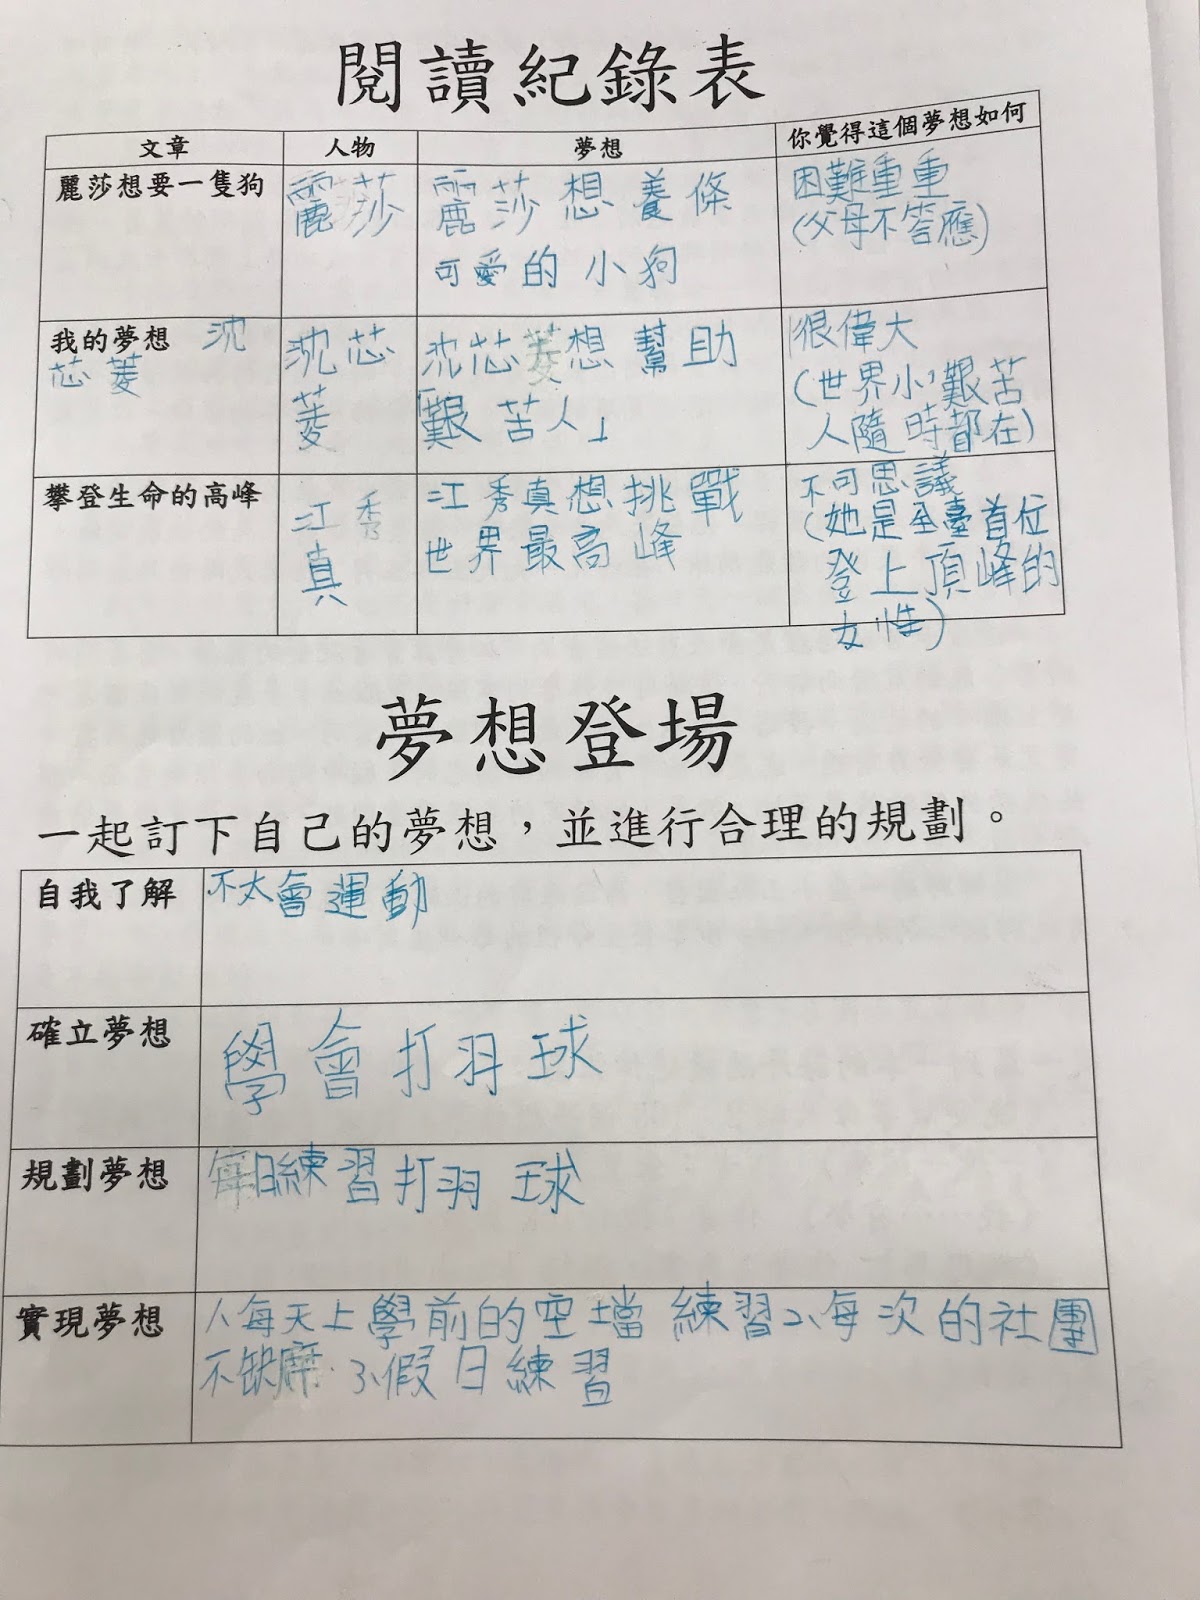 閱讀紀錄表
文章 人物 夢想 你覺得這個夢想如何
麗莎想要一隻狗
麗莎
麗莎想養條
可愛的小狗
困難重重
(父母不答應)
我的夢想 沈
芯菱
沈芯
菱
沈芯菱想幫助
「艱苦人」
很偉大
(世界小,艱苦
人隨時都在)
攀登生命的高峰
江秀
真
江秀真想挑戰
世界最高峰
不可思議
(她是全臺首位
登上頂峰的
女性)
夢想登場
一起訂下自己的夢想,並進行合理的規劃。
自我了解 不太會運動
確立夢想 學會打羽球
規劃夢想 每日練習打羽球
實現夢想 1、每天上學前的空擋練習2、每次的社團
不缺席.3、假日練習